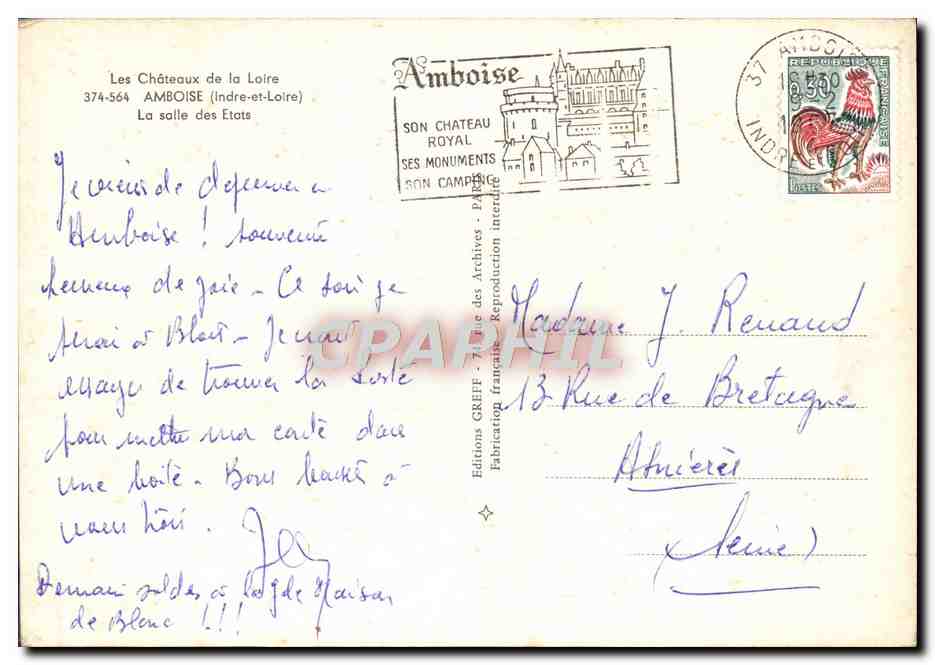 Les Châteaux de la Loire
374-564 AMBOISE (Indre-et-Loire)
La salle des Etats
Amboise
SON CHATEAU
ROYAL
SES MONUMENTS
SON CAMPING
37 AMBOISE
INDRE
REPUBLIQUE FRANÇAISE
0,30
POSTES
Je viens de dejeuner a
Amboise ! souvenir
heureux de joie - Ce soir je
serai à Blois - Je vais
essayer de trouver la poste
pour mettre ma carte dans
une boîte - Bons baisers à
vous trois.
Demain soldes à la gde Maison
de Blanc !!!
Editions GREFF - 74 rue des Archives - PARIS
Fabrication française Reproduction interdite
Madame J. Renaud
13 Rue de Bretagne
Asnières
(Seine)
CPAPHIL